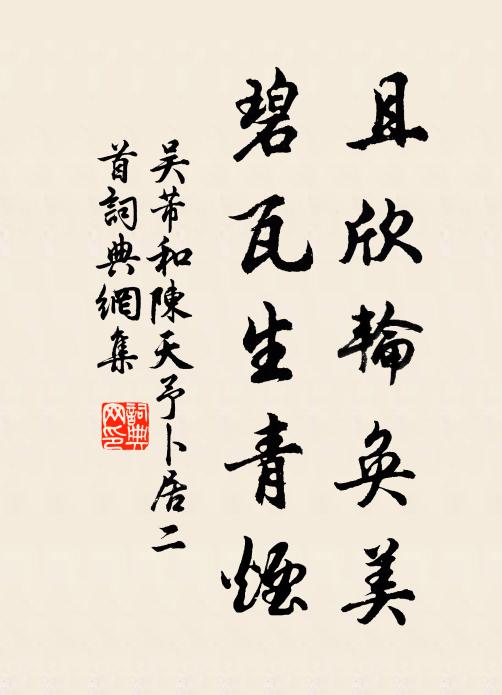 且欣輪奐美
碧瓦生青煙
吴芾和陳天予卜居二
首詞典網集
詞典网印